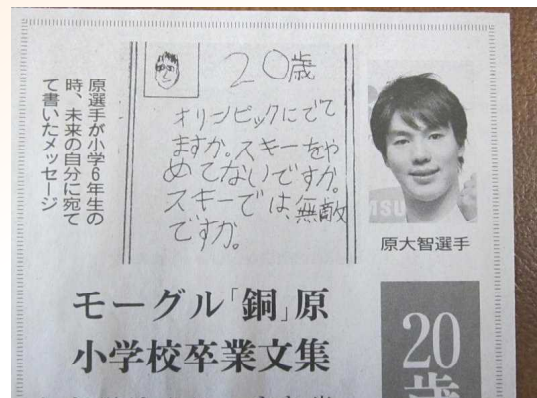 原選手が小学6年生の
時、未来の自分に宛て
て書いたメッセージ
20歳
オリンピックにでて
ますか。スキーをや
めてないですか。
スキーでは、無敵
ですか。
原大智選手
モーグル「銅」原
小学校卒業文集
20歳